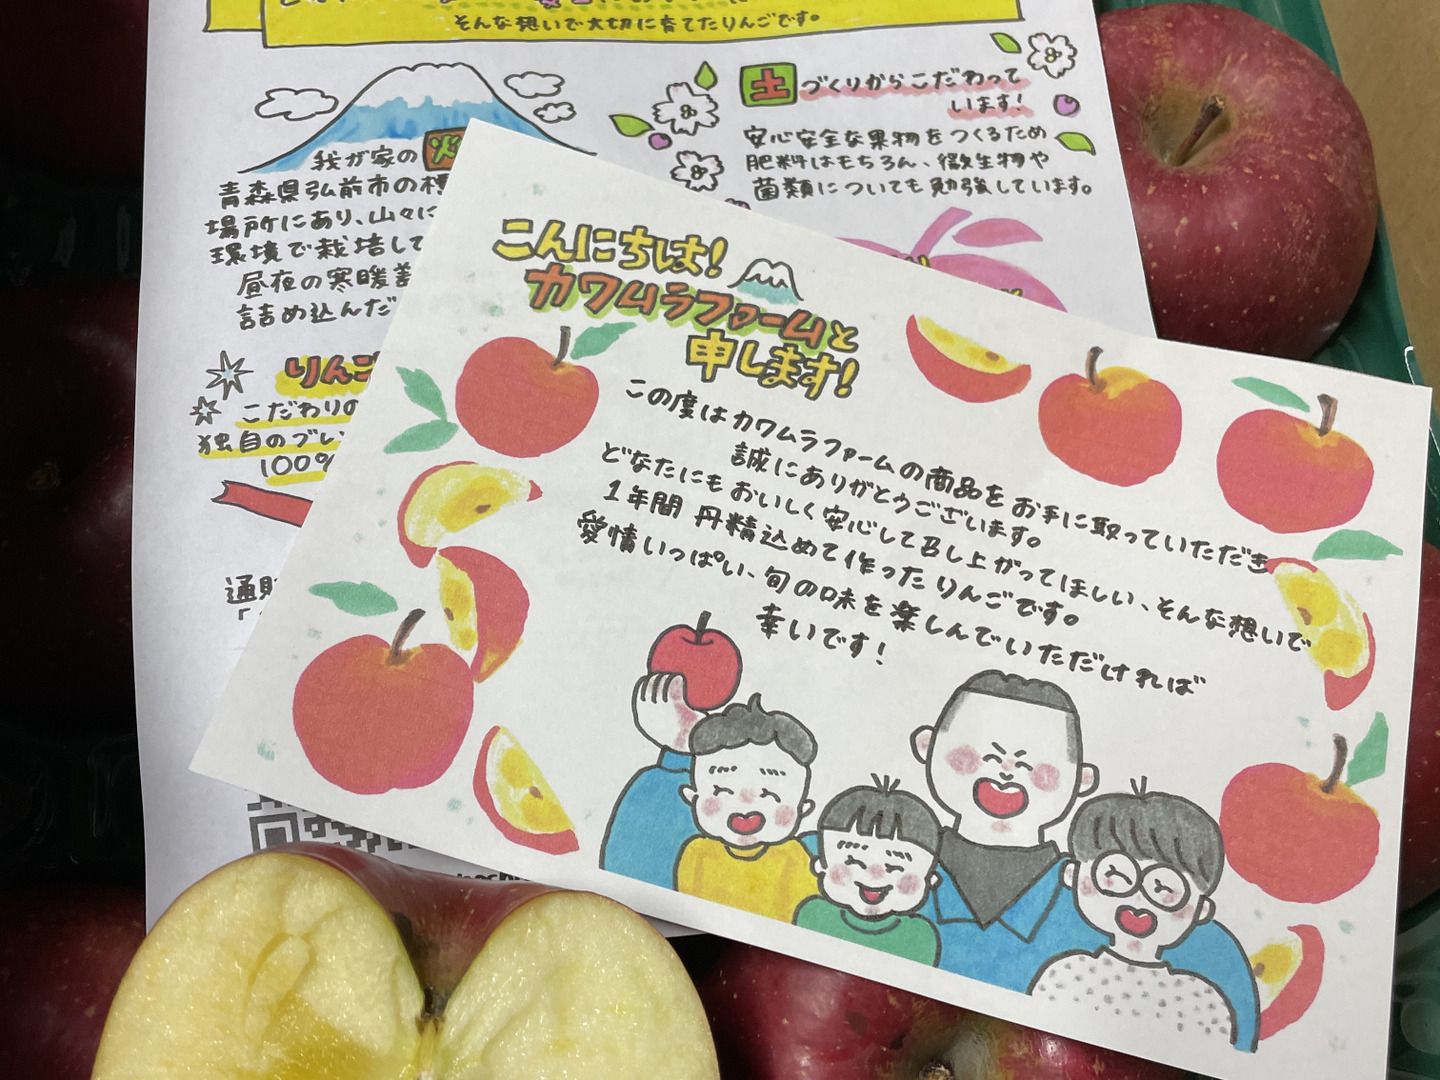 そんな想いで大切に育てたりんごです。
我が家の
青森県弘前市の
場所にあり、山々に
環境で栽培して
昼夜の寒暖差
詰め込んだ
土づくりからこだわって
います!
安心安全な果物をつくるため
肥料はもちろん、微生物や
菌類についても勉強しています。
りんご
こだわりの
独自のブレ
100%
通販
こんにちは!
カワムラファームと
申します!
この度はカワムラファームの商品をお手に取っていただき
誠にありがとうございます。
どなたにもおいしく安心して召し上がってほしい、そんな想いで
1年間 丹精込めて作ったりんごです。
愛情いっぱい、旬の味を楽しんでいただければ
幸いです!